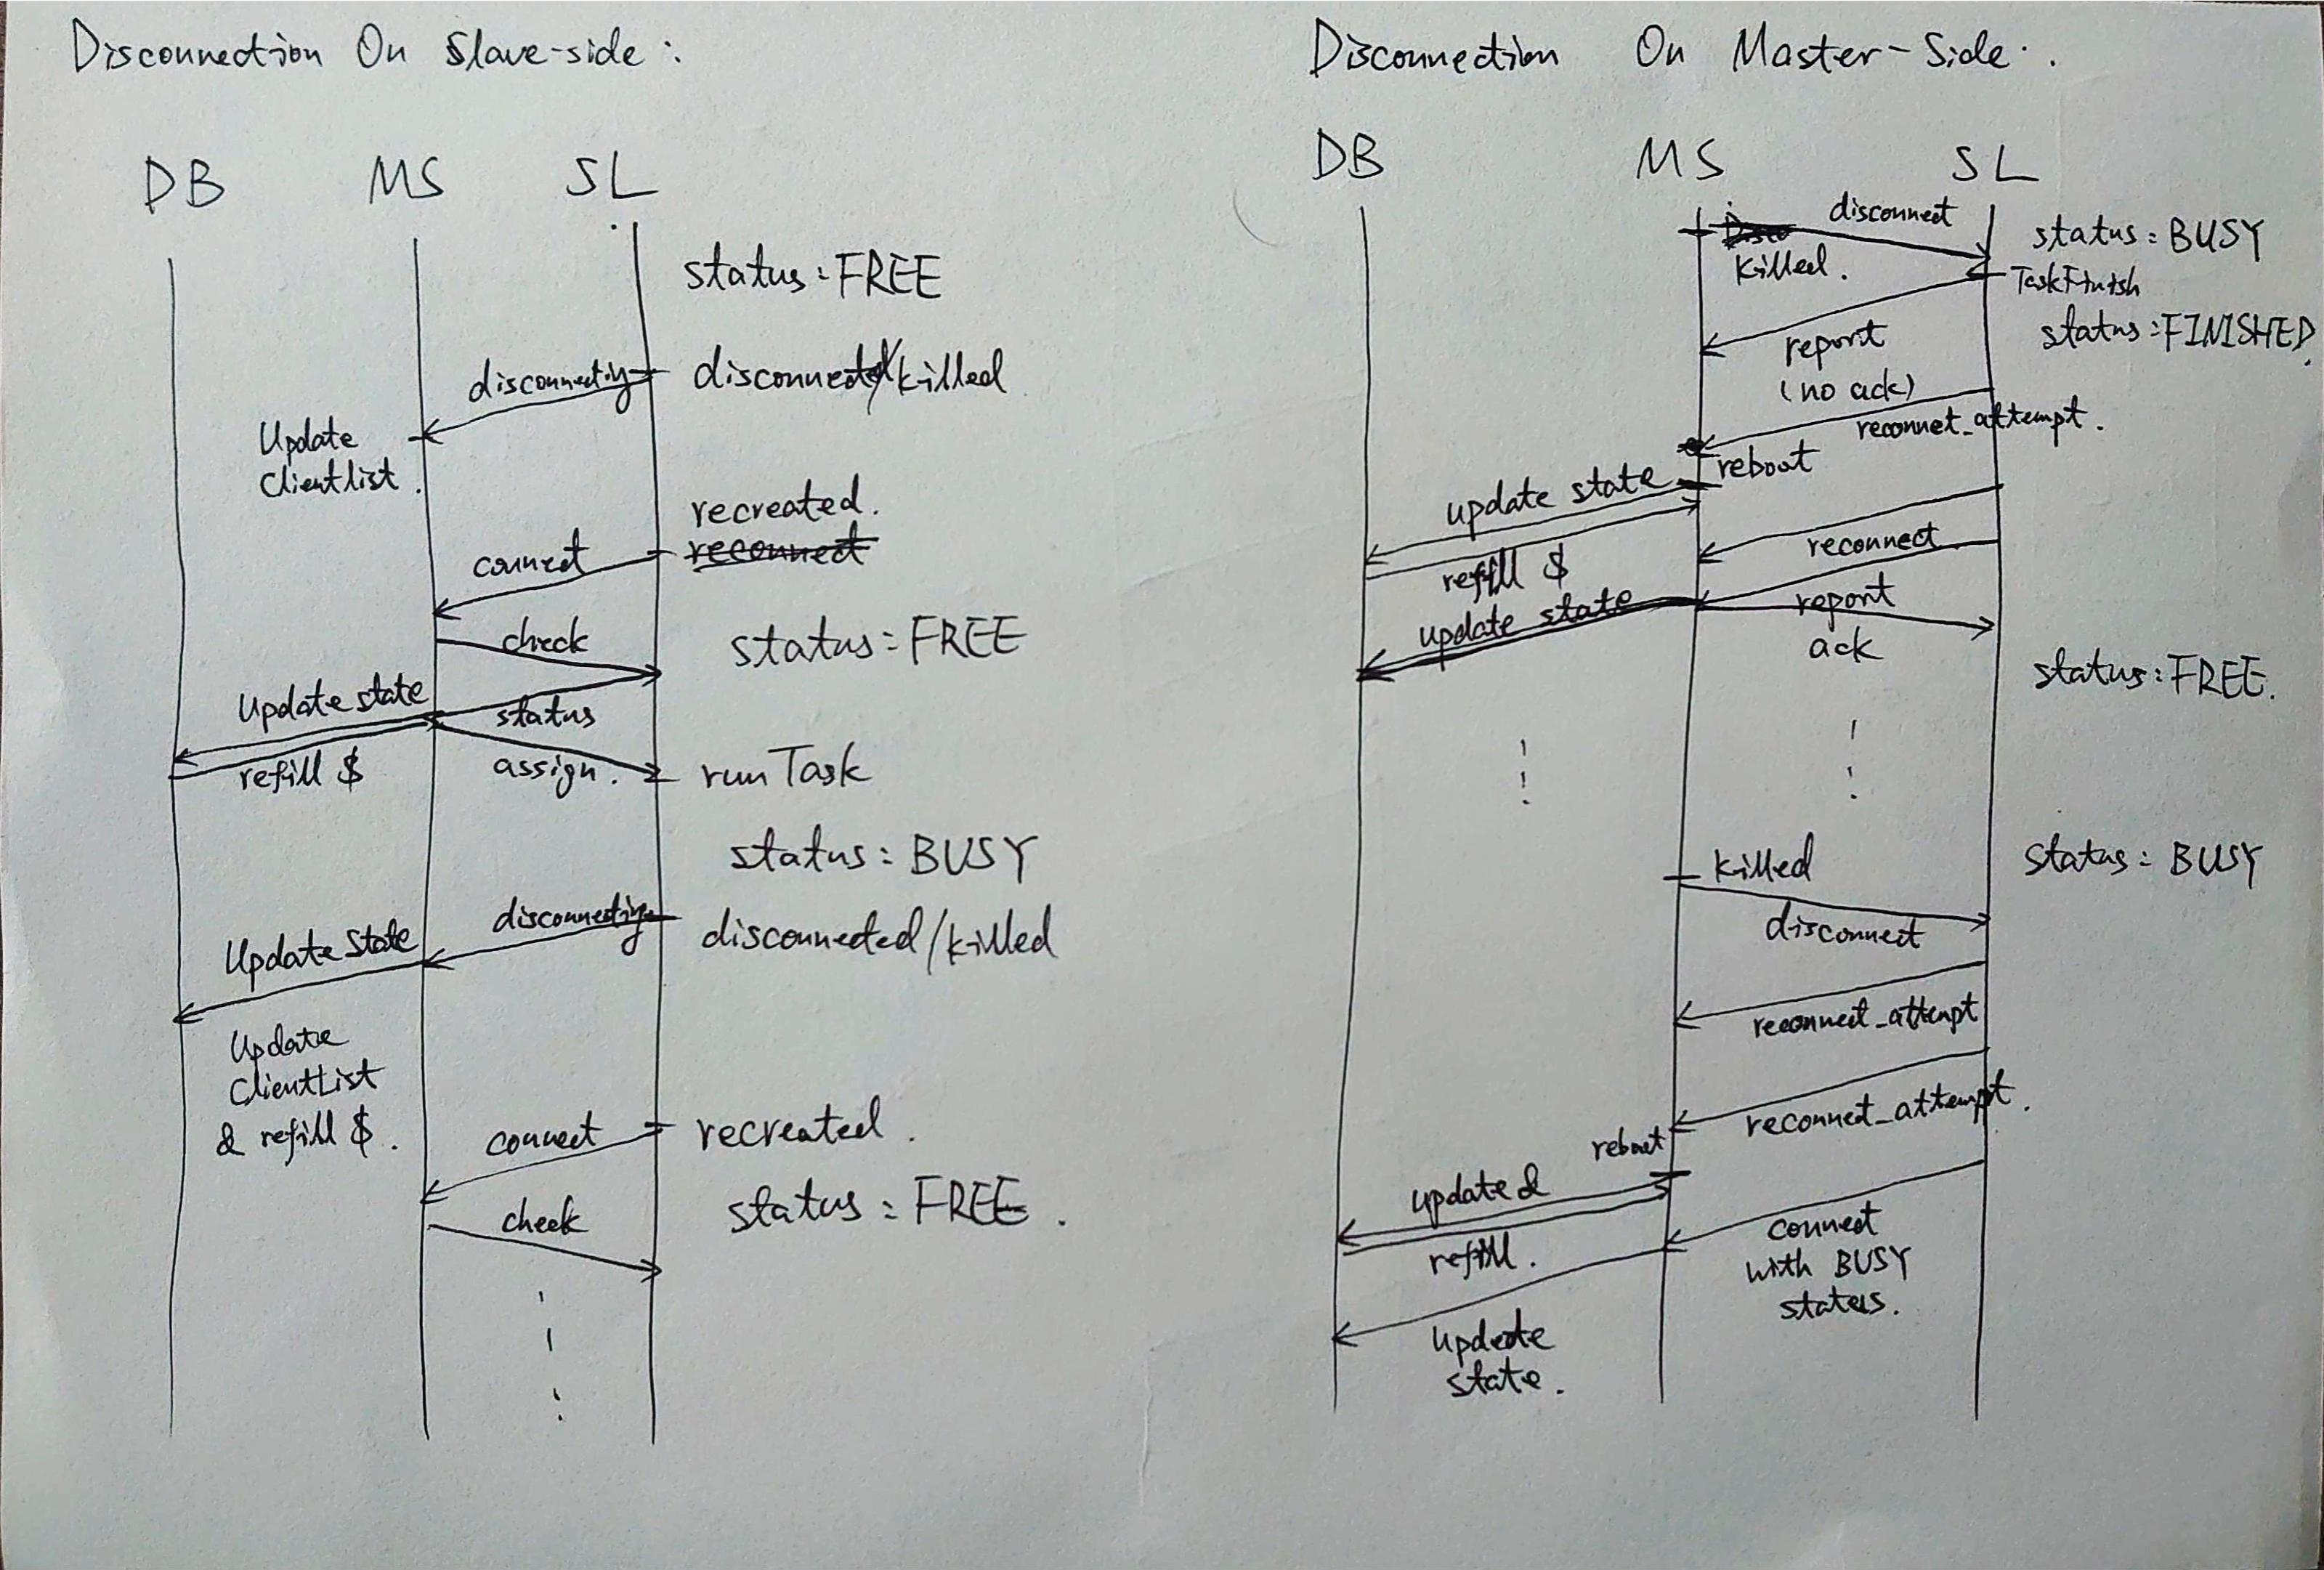 Disconnection On Slave-side :
DB MS SL
status : FREE
disconnecting
disconnected/killed
Update
Clientlist .
recreated.
reconnect
connect
check
status : FREE
Update state
status
refill $
assign .
run Task
status : BUSY
disconnecting
disconnected/killed
Update State
Update
ClientList
& refill $ .
connect
recreated .
check
status : FREE .
Disconnection On Master-Side .
DB MS SL
disconnect
status : BUSY
Disco
killed .
TaskFinish
status : FINISHED
report
(no ack)
reconnet_attempt .
reboot
update state
reconnect
refill $
update state
report
ack
status : FREE.
killed
status : BUSY
disconnect
reconnect_attempt
reconnet_attempt .
reboot
update &
refill .
connect
with BUSY
status.
update
state .